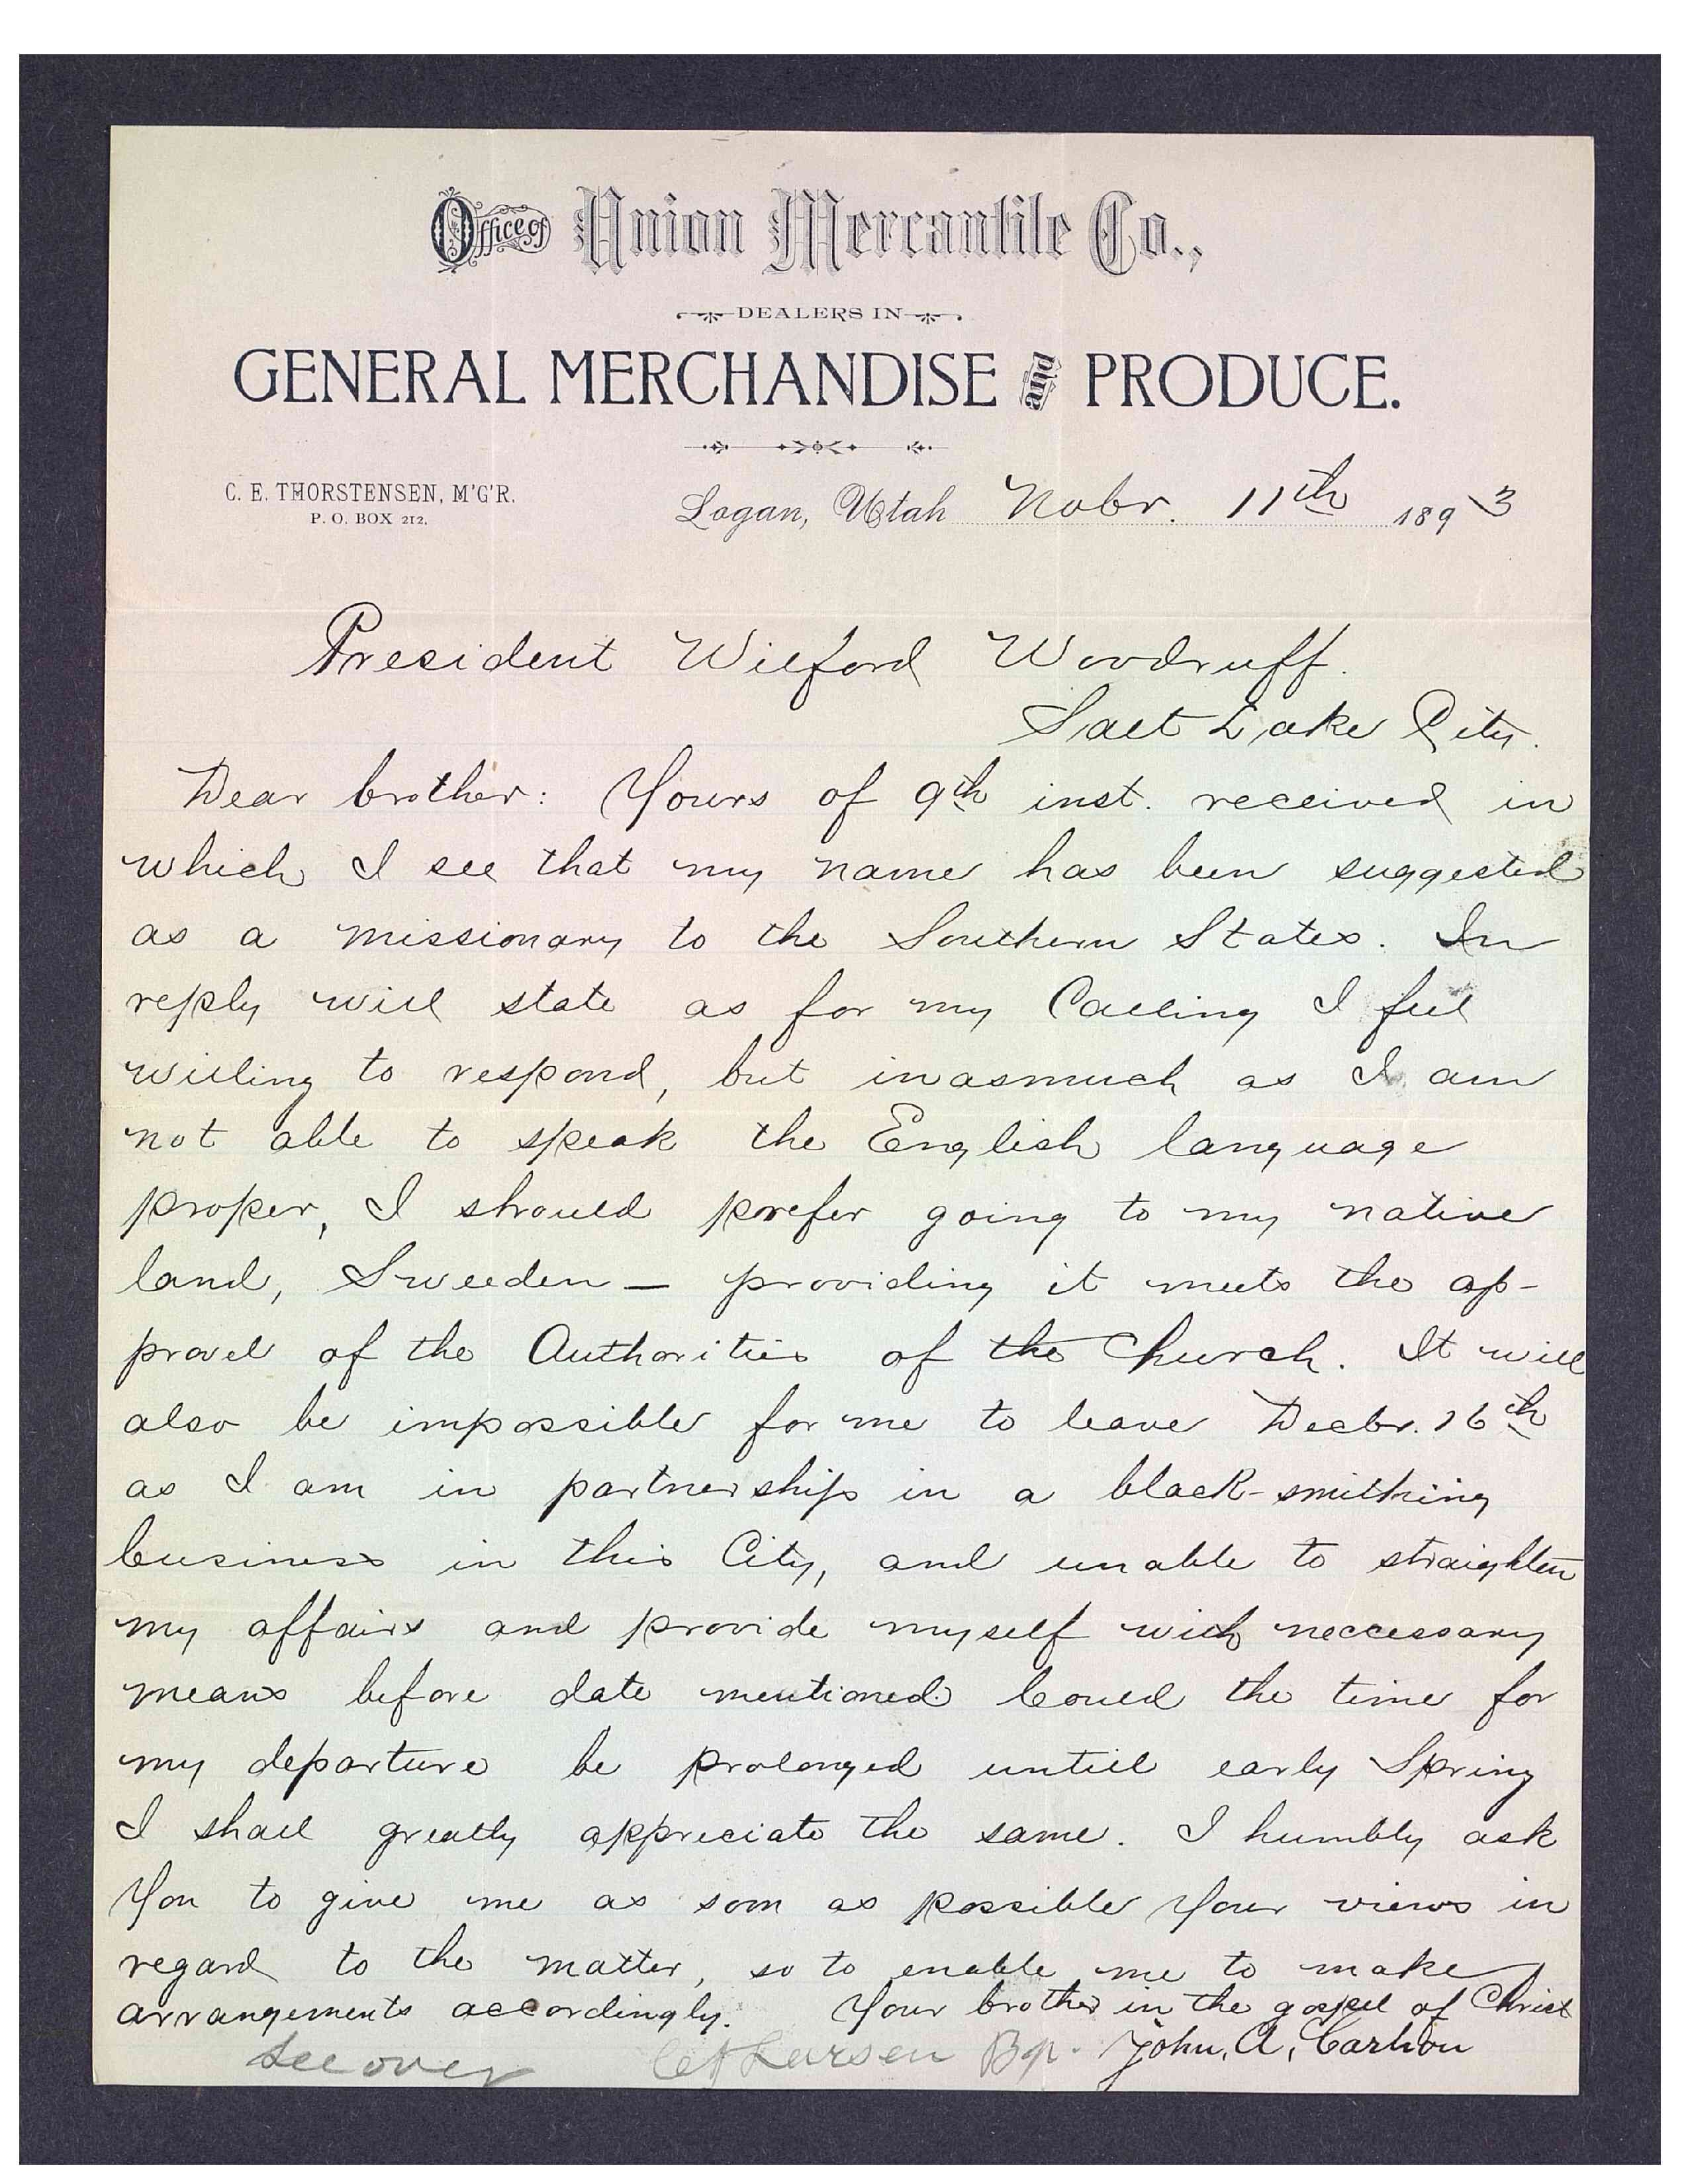 Office of Union Mercantile Co.,
DEALERS IN
GENERAL MERCHANDISE and PRODUCE.
C. E. THORSTENSEN, M'G'R.
P. O. BOX 212.
Logan, Utah Nobr. 11th 1893
President Wilford Woodruff.
Salt Lake City.
Dear brother: Yours of 9th inst. received in
which I see that my name has been suggested
as a missionary to the Southern States. In
reply will state as for my Calling I feel
willing to respond, but inasmuch as I am
not able to speak the English language
proper, I should prefer going to my native
land, Sweeden — providing it meets the ap-
provel of the Authorities of the Church. It will
also be impossible for me to leave Decbr. 16th
as I am in partnership in a black-smithing
business in this City, and unable to straighten
my affairs and provide myself with neccessary
means before date mentioned. Could the time for
my departure be prolonged untill early Spring
I shall greatly appreciate the same. I humbly ask
You to give me as soon as possible Your views in
regard to the matter, so to enable me to make
arrangements accordingly. Your brother in the gospel of Christ
See over Larsen Bp. John, A, Carlson